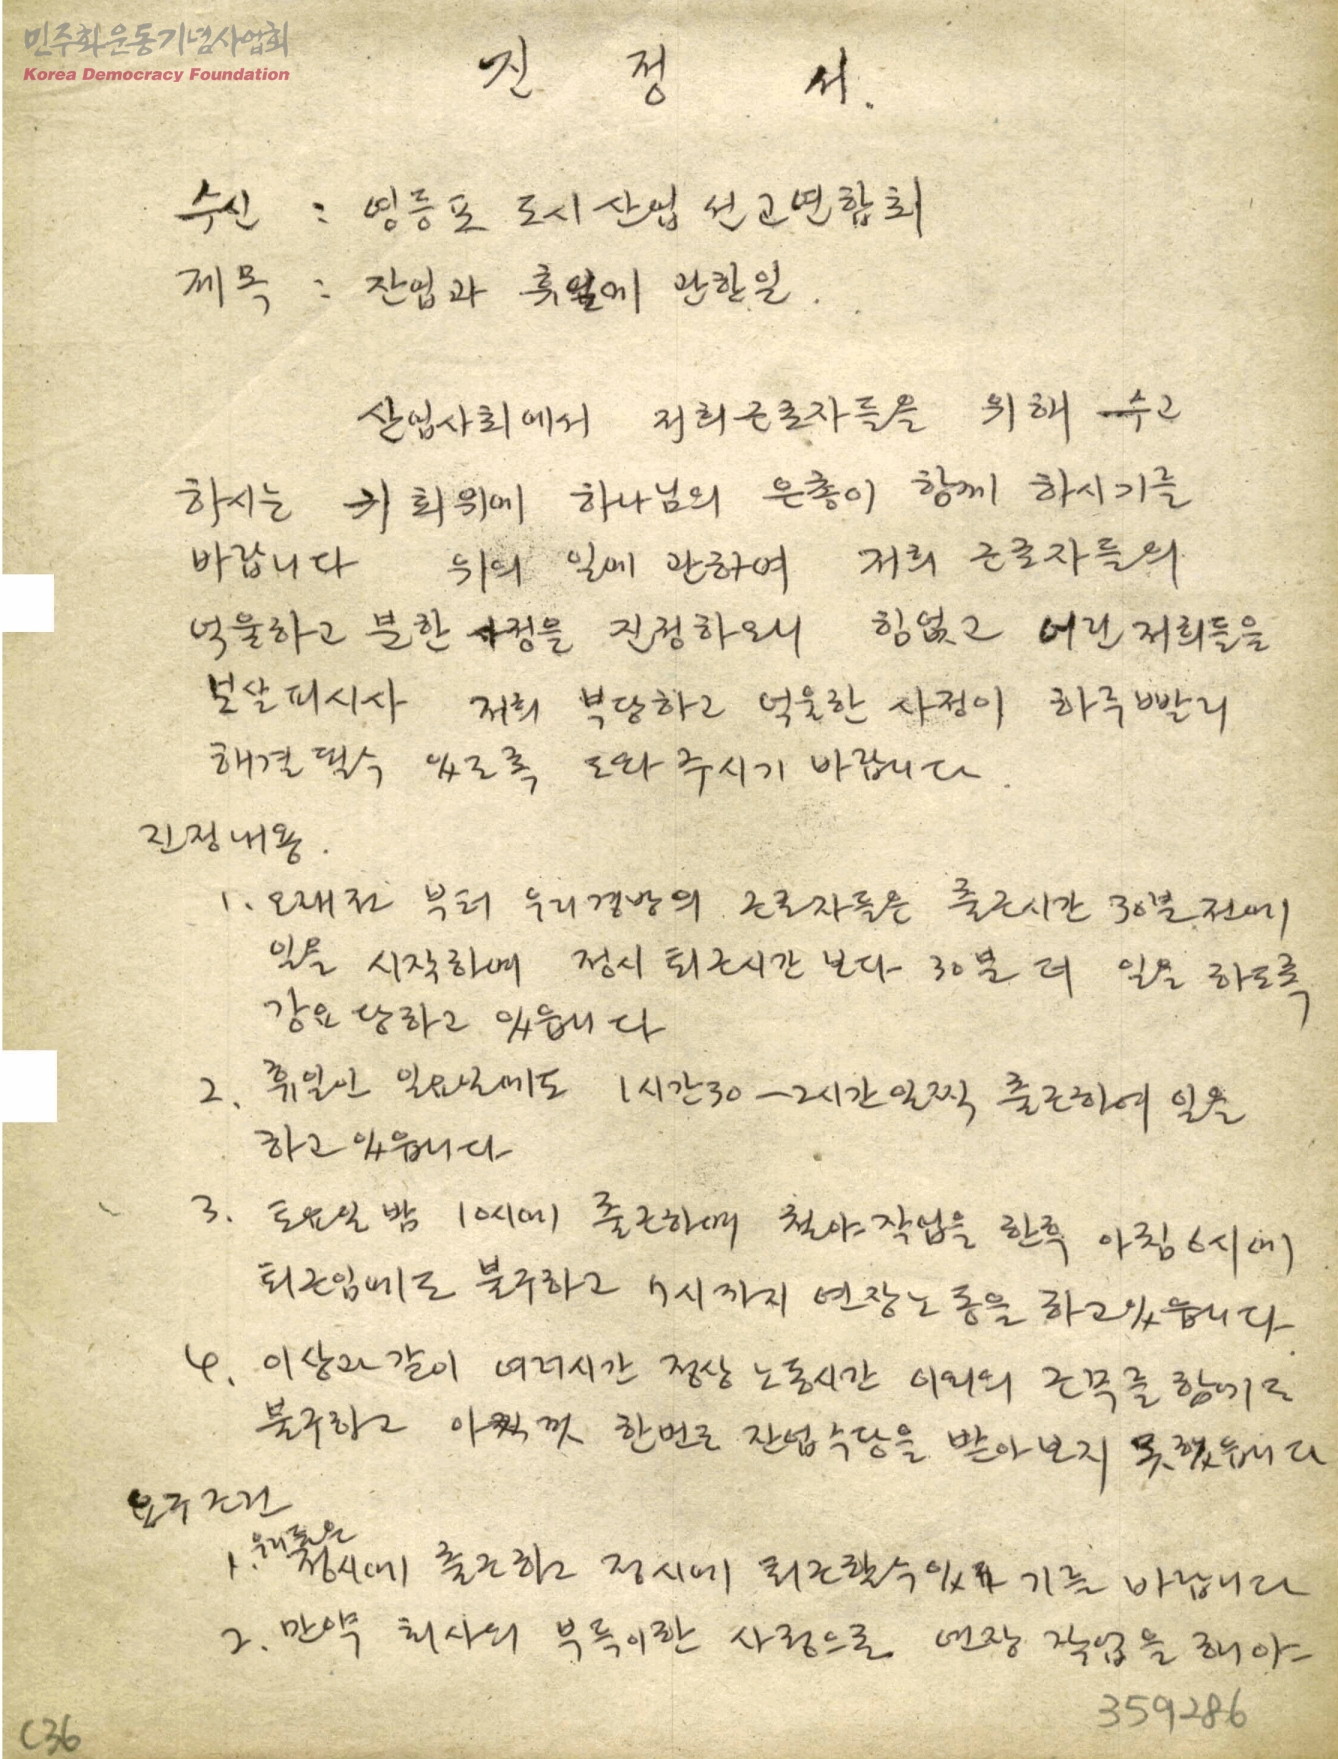 민주화운동기념사업회
Korea Democracy Foundation
진 정 서.
수신 : 영등포 도시산업선교연합회
제목 : 잔업과 휴일에 관한일.
산업사회에서 저희근로자들을 위해 수고
하시는 귀회위에 하나님의 은총이 함께 하시기를
바랍니다 위의 일에 관하여 저희 근로자들의
억울하고 분한 사정을 진정하오니 힘없고 어린 저희들을
보살피시사 저희 부당하고 억울한 사정이 하루빨리
해결될수 있도록 도와 주시기 바랍니다.
진정내용.
1. 오래전 부터 우리경방의 근로자들은 출근시간 30분전에
일을 시작하며 정시 퇴근시간 보다 30분 더 일을 하도록
강요 당하고 있읍니다
2. 휴일인 일요일에도 1시간30-2시간일찍 출근하여 일을
하고 있읍니다
3. 토요일 밤 10시에 출근하여 철야작업을 한후 아침 6시에
퇴근임에도 불구하고 7시까지 연장노동을 하고있읍니다.
4. 이상과 같이 여러시간 정상 노동시간 이외의 근무를 함에도
불구하고 아직껏 한번도 잔업수당을 받아보지 못했읍니다
요구조건
1. 우리들은 정시에 출근하고 정시에 퇴근할수있 기를 바랍니다
2. 만약 회사의 부득이한 사정으로 연장 작업을 해야
359286
C36